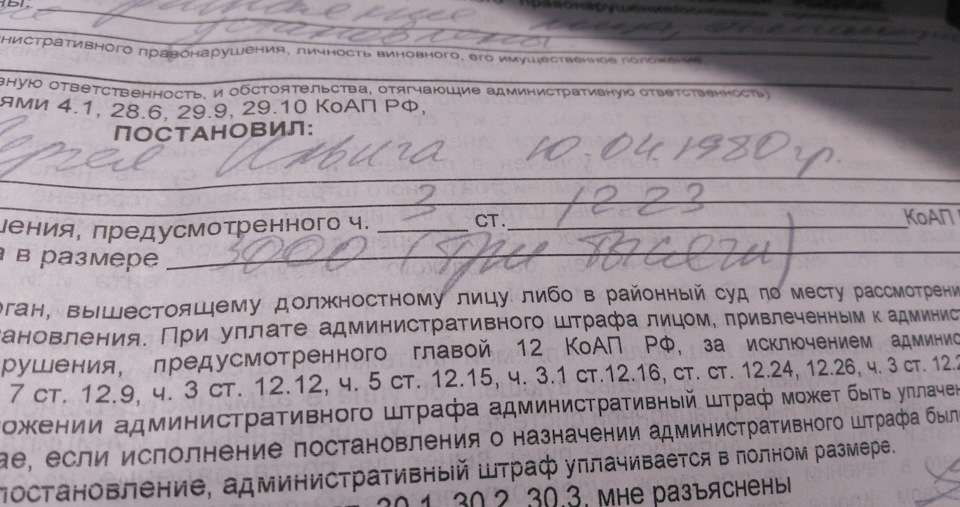 установлены
министративного правонарушения, личность виновного, его имущественное положение,
вную ответственность, и обстоятельства, отягчающие административную ответственность)
ями 4.1, 28.6, 29.9, 29.10 КоАП РФ,
ПОСТАНОВИЛ:
Сергея Ильича 10.04.1980 гр.
шения, предусмотренного ч. 3 ст. 12 23 КоАП
а в размере 3000 (три тысячи)
рган, вышестоящему должностному лицу либо в районный суд по месту рассмотрени
тановления. При уплате административного штрафа лицом, привлеченным к админист
рушения, предусмотренного главой 12 КоАП РФ, за исключением админис
7 ст. 12.9, ч. 3 ст. 12.12, ч. 5 ст. 12.15, ч. 3.1 ст.12.16, ст. ст. 12.24, 12.26, ч. 3 ст. 12.2
ожении административного штрафа административный штраф может быть уплачен
ае, если исполнение постановления о назначении административного штрафа было
постановление, административный штраф уплачивается в полном размере.
30.1, 30.2, 30.3, мне разъяснены